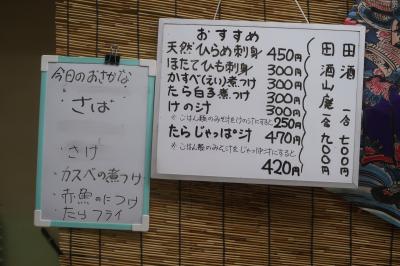 今日のおさかな
・さば
・さけ
・カスベの煮つけ
・赤魚のにつけ
・たらフライ
おすすめ
天然ひらめ刺身 450円
ほたてひも刺身 300円
かすべ(えい)煮つけ 300円
たら白子煮つけ 300円
けの汁 300円
※ごはん類のみそ汁をけの汁にすると、250円
たらじゃっぱ汁 470円
※ごはん類のみそ汁をじゃっぱ汁にすると、
420円
田酒 一合 七〇〇円
田酒山廃 一合 九〇〇円